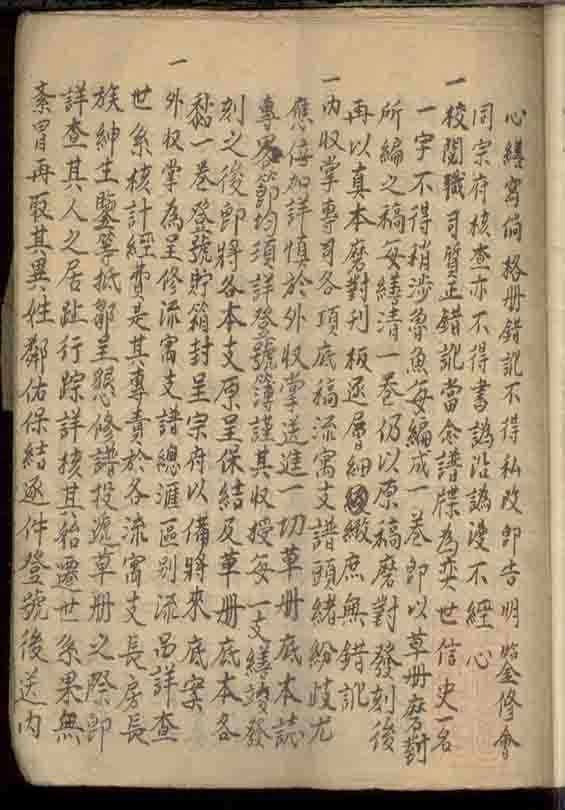 心繕寫倘格册錯訛不得私改即告明 始金修會
同宗府核查亦不得書譌沿譌漫不經心
一校閱職司質正錯訛當念譜牒為奕世信史一名
一字不得稍涉魯魚每編成一卷即以草册磨對
所編之稿每繕清一卷仍以原稿磨對發刻後
再以真本磨對刊板逐層細緻庶無錯訛
一內收掌專司各項底稿流寓支譜頭緒紛歧尤
應倍加詳慎於外收掌送進一切草册底本誌
專 節均須詳登號簿謹其收授每一支繕譜發
刻之後即將各本支原呈保結及草册底本各
黏一卷登號貯箱封呈宗府以備將來底案
一外收掌為呈修流寓支譜總滙區別流品詳查
世系核計經費是其專責於各流寓支長房長
族紳生鑒等抵鄒呈懇修譜投遞草册之際即
詳查其人之居趾行踪詳核其始遷世系果無
紊冒再取其異姓鄰佑保結逐件登號後送內